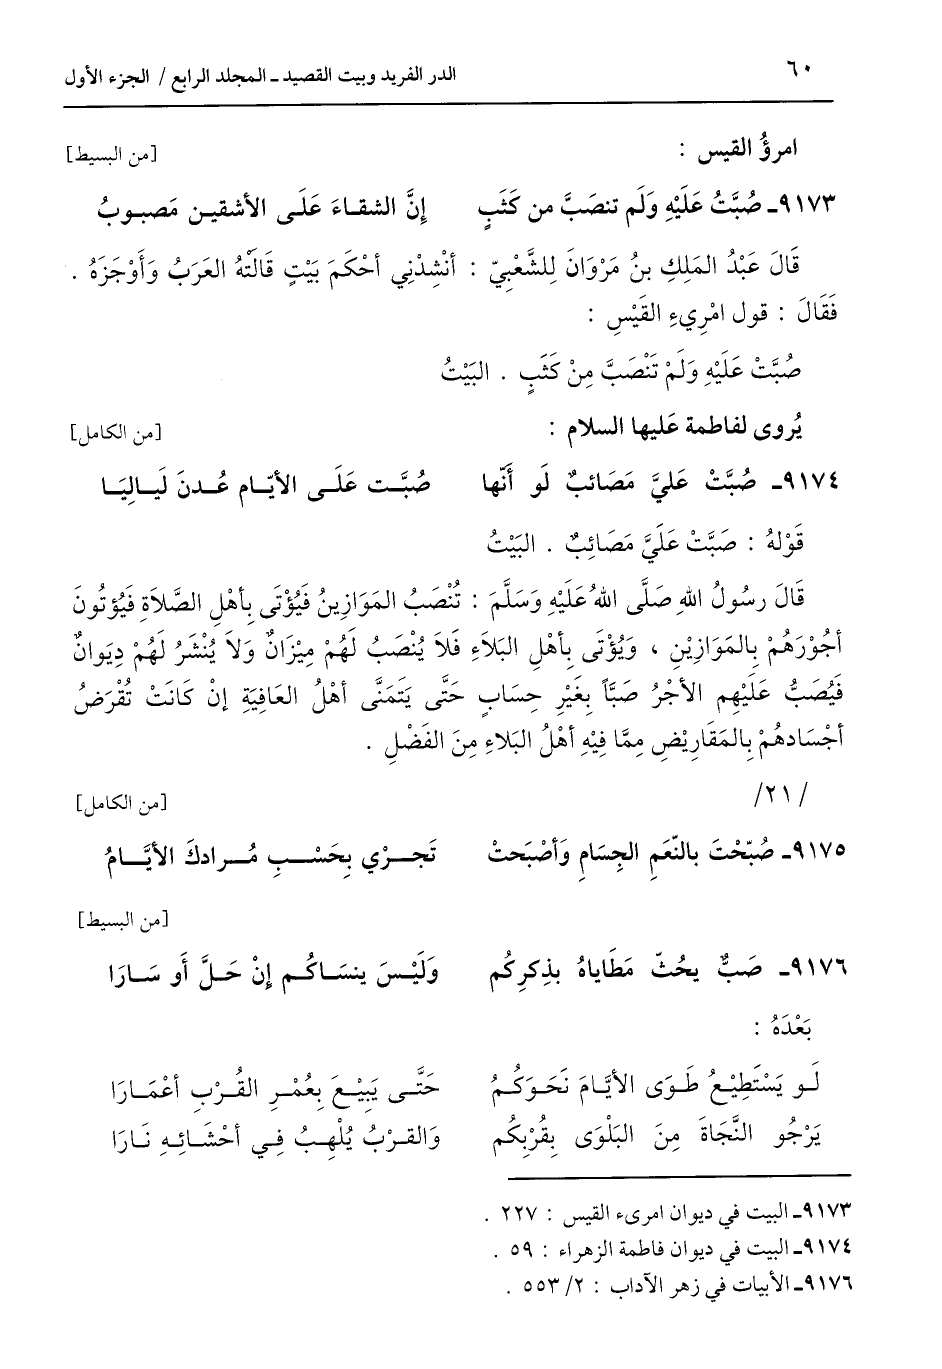 ٦٠ الدر الفريد وبيت القصيد ـ المجلد الرابع / الجزء الأول
امرؤُ القيس : [من البسيط]
٩١٧٣ـ صُبَّتُ عَلَيْهِ وَلَم تنصَبَّ من كَثَبٍ إنَّ الشقاءَ عَلَى الأشقين مَصبوبُ
قَالَ عَبْدُ المَلِكِ بنُ مَرْوَانَ لِلشَّعْبِيّ : أنْشِدْنِي أحْكَمَ بَيْتٍ قَالَتْهُ العَرَبُ وَأَوْجَزَهُ .
فَقَالَ : قول امْرِيءِ القَيْسِ :
صُبَّتْ عَلَيْهِ وَلَمْ تَنْصَبَّ مِنْ كَثَبٍ . البَيْتُ
يُروى لفاطمة عَليها السلام : [من الكامل]
٩١٧٤ـ صُبَّتْ عَليَّ مَصَائبٌ لَو أَنّها صُبَّت عَلَى الأيّام عُدنَ لَيالِيَا
قَوْلهُ : صَبَّتْ عَلَيَّ مَصَائِبٌ . البَيْتُ
قَالَ رسُولُ اللهِ صَلَّى اللهُ عَلَيْهِ وَسَلَّمَ : تُنْصَبُ المَوَازِينُ فَيُؤْتَى بِأهْلِ الصَّلاَةِ فَيُؤتُونَ
أجُوْرَهُمْ بِالمَوَازِيْنِ ، وَيُؤْتَى بِأهْلِ البَلاَءِ فَلاَ يُنْصَبُ لَهُمْ مِيْزَانٌ وَلاَ يُنْشَرُ لَهُمْ دِيَوانٌ
فَيُصَبُّ عَلَيْهِم الأجْرُ صَبَّاً بِغَيْرِ حِسَابٍ حَتَّى يَتَمَنَّى أهْلُ العَافِيَةِ إنْ كَانَتْ تُقْرَضُ
أجْسَادهُمْ بِالمَقَارِيْضِ مِمَّا فِيْهِ أهْلُ البَلاءِ مِنَ الفَضْلِ .
/٢١/ [من الكامل]
٩١٧٥ـ صُبّحْتَ بالنّعَمِ الجِسَامِ وَأصْبَحتْ تَجرْي بِحَسْبِ مُرادكَ الأيَّامُ
[من البسيط]
٩١٧٦ـ صَبٌّ يحُثّ مَطَاياهُ بذِكرِكُم وَلَيْسَ ينسَاكُم إنْ حَلَّ أو سَارَا
بَعْدَهُ :
لَو يَسْتَطِيْعُ طَوَى الأيَّامَ نَحوَكُمُ حَتَّى يَبِيْعَ بِعُمْرِ القُرْبِ أعْمَارَا
يَرْجُو النَّجَاةَ مِنَ البَلْوَى بِقُرْبِكُم وَالقرْبُ يُلْهِبُ فِي أحْشَائِهِ نَارَا
٩١٧٣ـ البيت في ديوان امرىء القيس : ٢٢٧ .
٩١٧٤ـ البيت في ديوان فاطمة الزهراء : ٥٩ .
٩١٧٦ـ الأبيات في زهر الآداب : ٢/ ٥٥٣ .